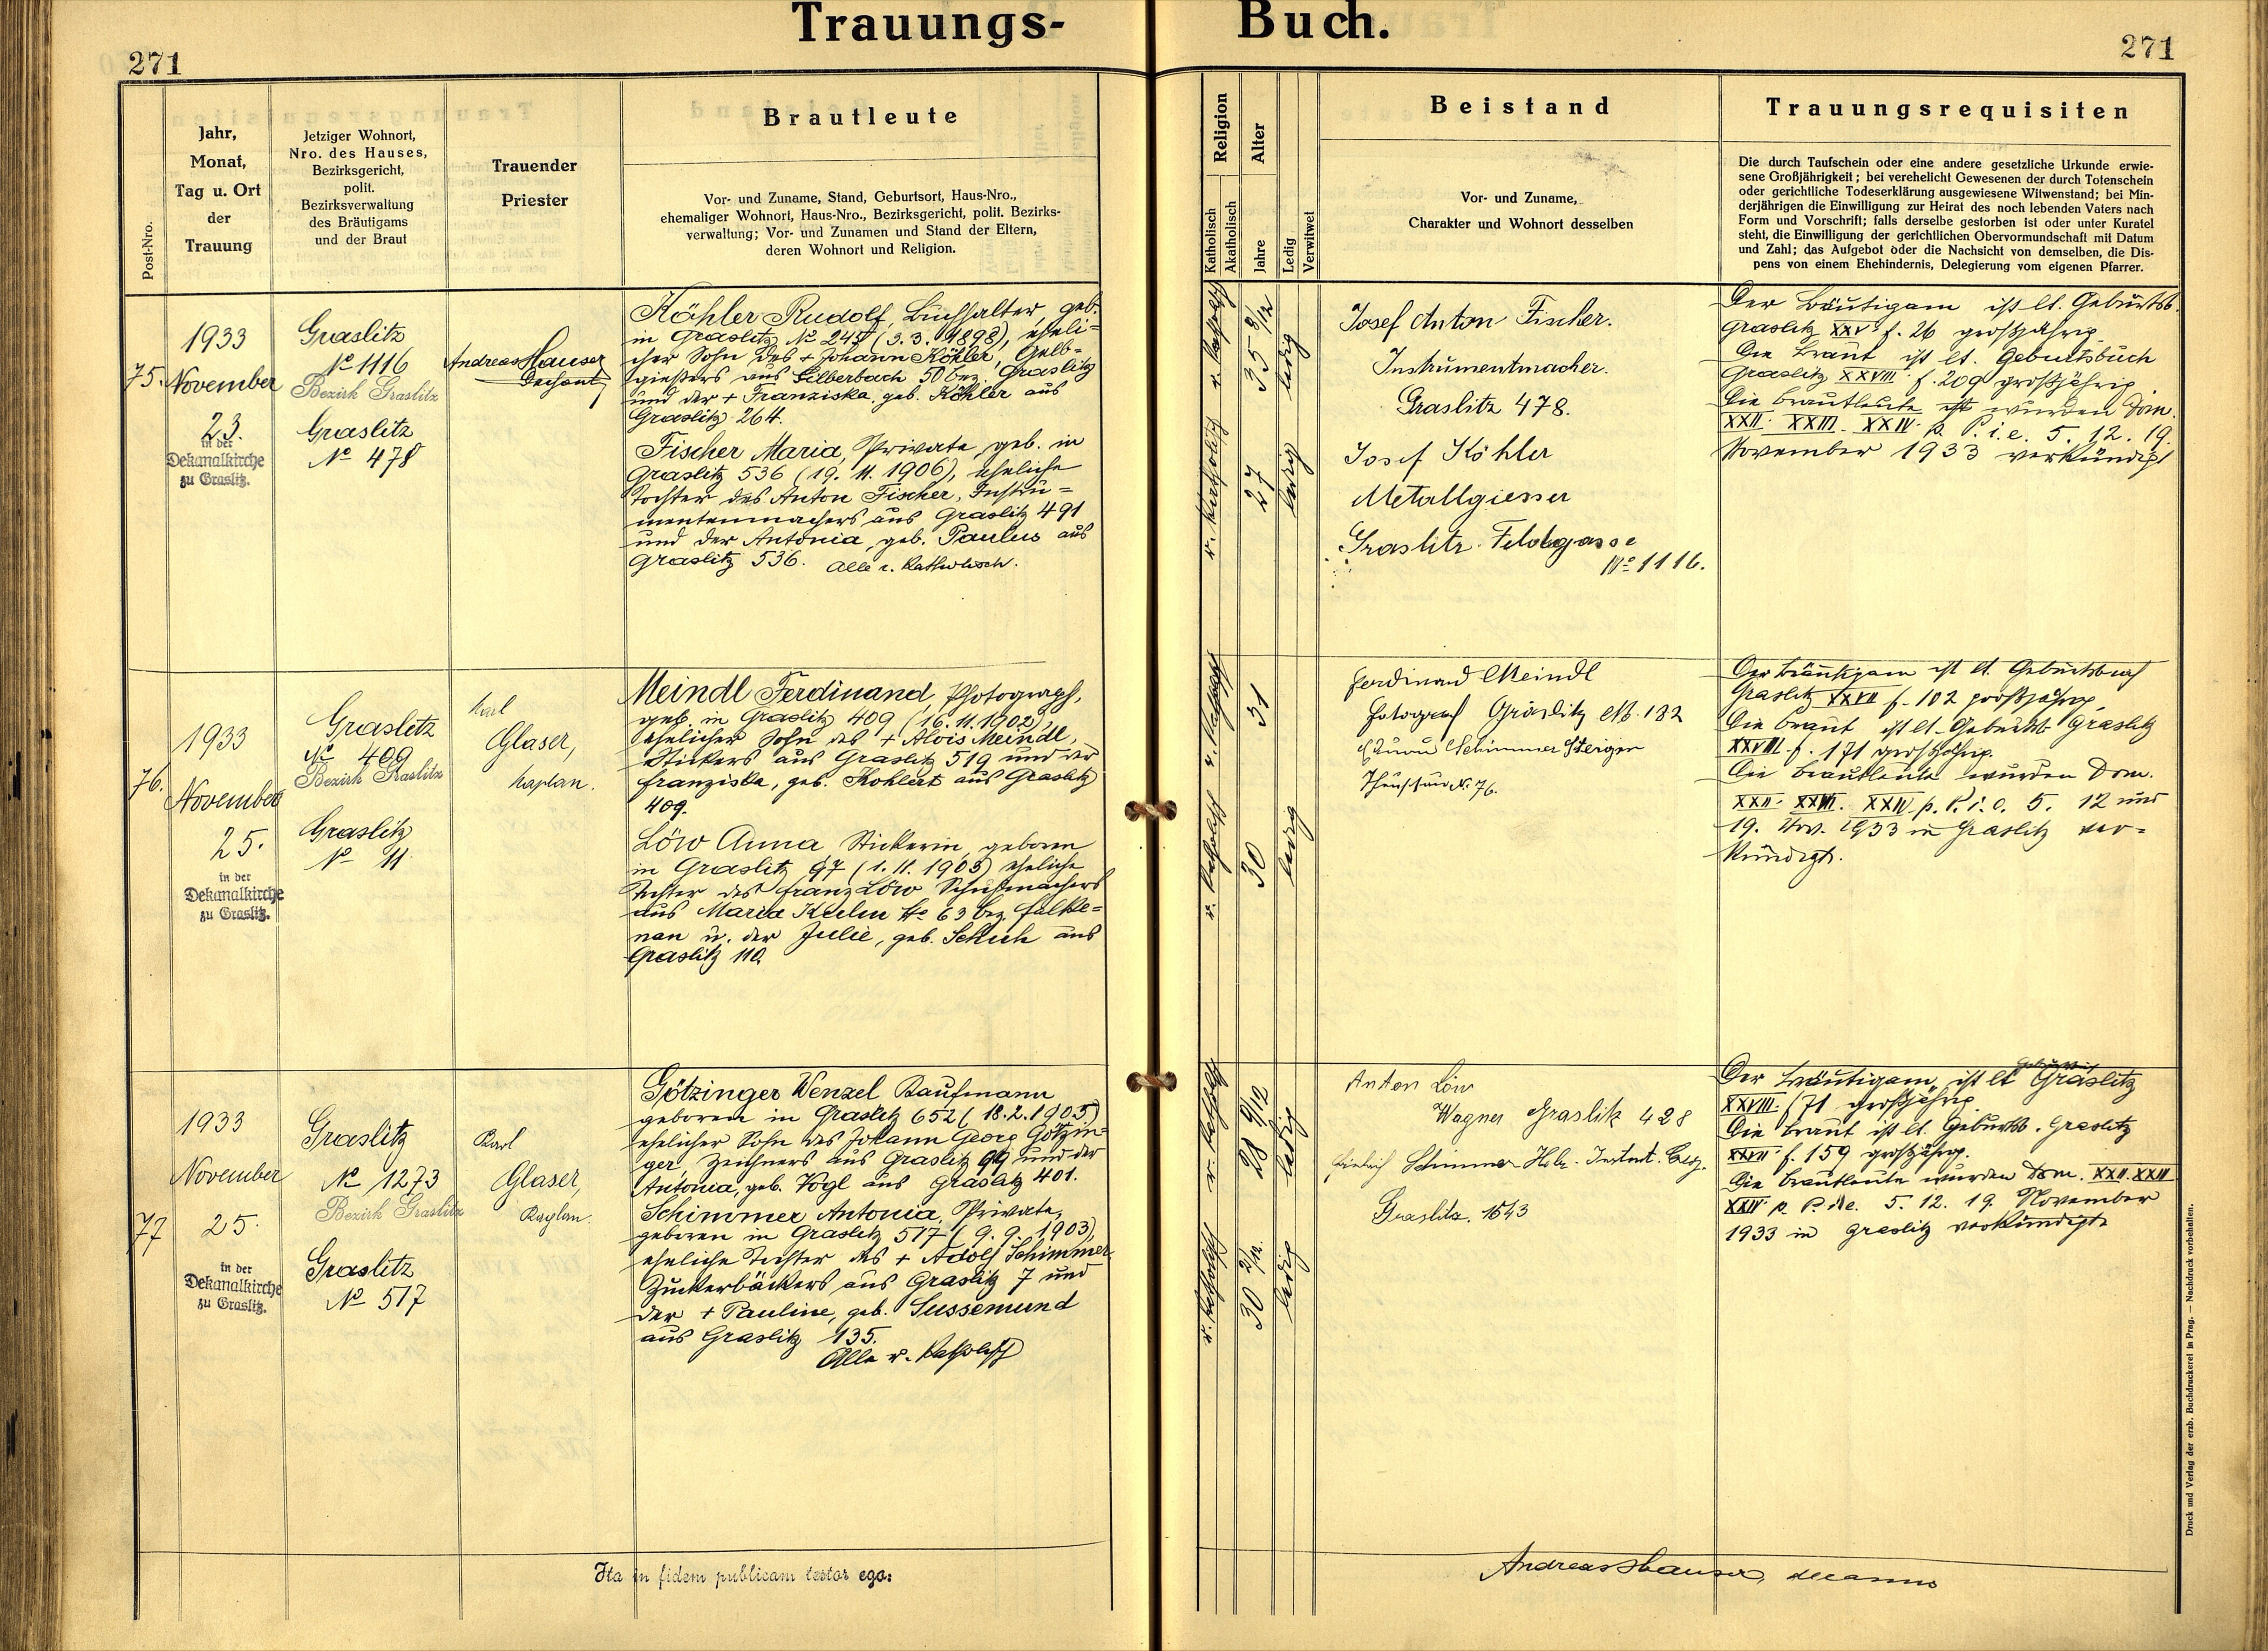 Trauungs- Buch.
271
271
Post-Nro.
Jahr,
Monat,
Tag u. Ort
der
Trauung
Jetziger Wohnort,
Nro. des Hauses,
Bezirksgericht,
polit.
Bezirksverwaltung
des Bräutigams
und der Braut
Trauender
Priester
Brautleute
Vor- und Zuname, Stand, Geburtsort, Haus-Nro.,
ehemaliger Wohnort, Haus-Nro., Bezirksgericht, polit. Bezirks-
verwaltung; Vor- und Zunamen und Stand der Eltern,
deren Wohnort und Religion.
Religion
Katholisch
Akatholisch
Alter
Jahre
Ledig
Verwitwet
Beistand
Vor- und Zuname,
Charakter und Wohnort desselben
Trauungsrequisiten
Die durch Taufschein oder eine andere gesetzliche Urkunde erwie-
sene Großjährigkeit; bei verehelicht Gewesenen der durch Totenschein
oder gerichtliche Todeserklärung ausgewiesene Witwenstand; bei Min-
derjährigen die Einwilligung zur Heirat des noch lebenden Vaters nach
Form und Vorschrift; falls derselbe gestorben ist oder unter Kuratel
steht, die Einwilligung der gerichtlichen Obervormundschaft mit Datum
und Zahl; das Aufgebot oder die Nachsicht von demselben, die Dis-
pens von einem Ehehindernis, Delegierung vom eigenen Pfarrer.
75.
1933
November
23.
in der
Dekanalkirche
zu Graslitz.
Graslitz
No 1116
Bezirk Graslitz
Graslitz
No 478
Andreas Hauser
Dechant
Köhler Rudolf, Buchhalter, geb.
in Graslitz No 245 (3. 3. 1898), eheli-
cher Sohn des + Johann Köhler, Gelb-
gießers aus Silberbach 50 bez. Graslitz
und der + Franziska, geb. Köhler aus
Graslitz 264.
Fischer Maria, Private, geb. in
Graslitz 536 (19. 11. 1906), eheliche
Tochter des Anton Fischer, Instru-
mentenmachers aus Graslitz 491
und der Antonia, geb. Paulus aus
Graslitz 536. Alle r. katholisch.
r. katholisch
35 8/12
ledig
r. katholisch
27
ledig
Josef Anton Fischer.
Instrumentmacher.
Graslitz 478.
Josef Köhler
Metallgiesser
Graslitz Feldgasse
No 1116.
Der Bräutigam ist lt. Geburtsb.
Graslitz XXV f. 26 großjährig
Die Braut ist lt. Geburtsbuch
Graslitz XXVIII f. 209 großjährig.
Die Brautleute ist wurden Dom.
XXII. XXIII. XXIV. p. P. i. e. 5. 12. 19.
November 1933 verkündigt
76.
1933
November
25.
in der
Dekanalkirche
zu Graslitz.
Graslitz
No 409
Bezirk Graslitz
Graslitz
No 11
Karl
Glaser,
Kaplan.
Meindl Ferdinand, Photograph,
geb. in Graslitz 409 (16. 11. 1902),
ehelicher Sohn des + Alois Meindl,
Stickers aus Graslitz 519 und der
Franziska, geb. Kohlert aus Graslitz
409.
Löw Anna Stickerin, geboren
in Graslitz 97 (1. 11. 1903) eheliche
Tochter des Franz Löw Schuhmachers
aus Maria Kulm No 63 bez. Falke-
nau u. der Julie, geb. Schuh aus
Graslitz 110.
r. katholisch
31
r. katholisch
30
ledig
Ferdinand Meindl
Fotograf Graslitz No. 182
Schimmer Steiger
No. 76.
Der Bräutigam ist lt. Geburtsbuch
Graslitz XXVII f. 102 großjährig
Die Braut ist lt. Geburtsb. Graslitz
XXVIII. f. 171 großjährig.
Die Brautleute wurden Dom.
XXII. XXIII. XXIV p. P. i. e. 5. 12 und
19. Nov. 1933 in Graslitz ver-
kündigt.
77
1933
November
25.
in der
Dekanalkirche
zu Graslitz.
Graslitz
No 1273
Bezirk Graslitz
Graslitz
No 517
Karl
Glaser,
Kaplan.
Götzinger Wenzel Kaufmann
geboren in Graslitz 652 (18. 2. 1905)
ehelicher Sohn des Johann Georg Götzin-
ger, Zeichners aus Graslitz 99 und der
Antonia, geb. Vogl aus Graslitz 401.
Schimmer Antonia, Private,
geboren in Graslitz 517 (9. 9. 1903),
eheliche Tochter des + Adolf Schimmer
Zuckerbäckers aus Graslitz 7 und
der + Pauline, geb. Sussemund
aus Graslitz 135.
Alle r. katholisch
r. katholisch
28 9/12
ledig
r. katholisch
30 2/12.
ledig
Anton Löw
Wagner Graslitz 428
Schimmer
Graslitz. 1543
Der Bräutigam ist lt Geburtsb. Graslitz
XXVIII. f 71 großjährig
Die Braut ist lt. Geburtsb. Graslitz
f. 159 großjährig.
Die Brautleute wurden Dom. XXII. XXIII
XXIV p. P. i. e. 5. 12. 19. November
1933 in Graslitz verkündigt
Ita in fidem publicam testor ego:
Andreas Hauser, decanus
Druck und Verlag der erzb. Buchdruckerei in Prag. — Nachdruck vorbehalten.